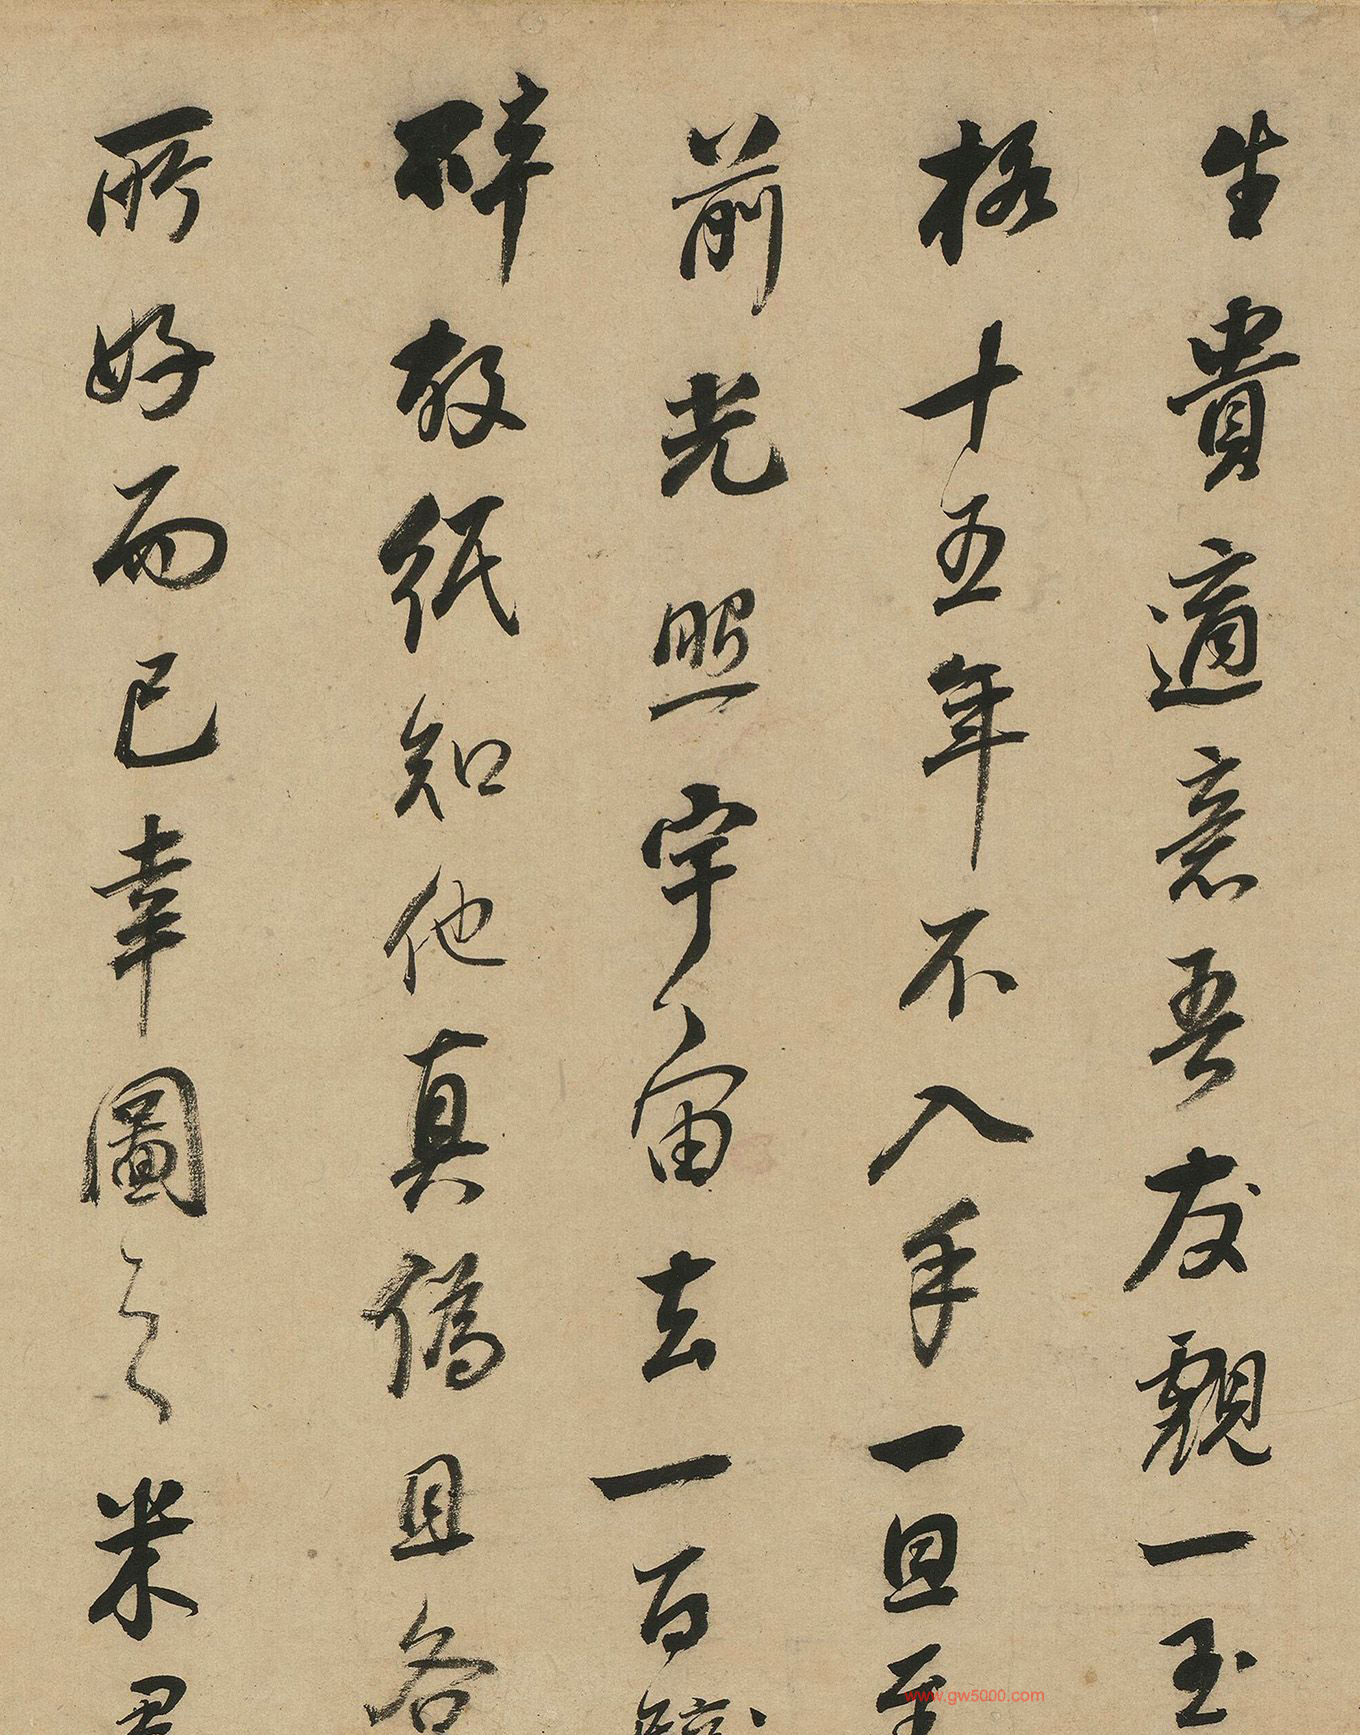 生貴適意吾友覩一玉
格十五年不入手一旦至
前光照宇宙去一百
碎故紙知他真偽且各
所好而已幸圖之米君
www.gw5000.com